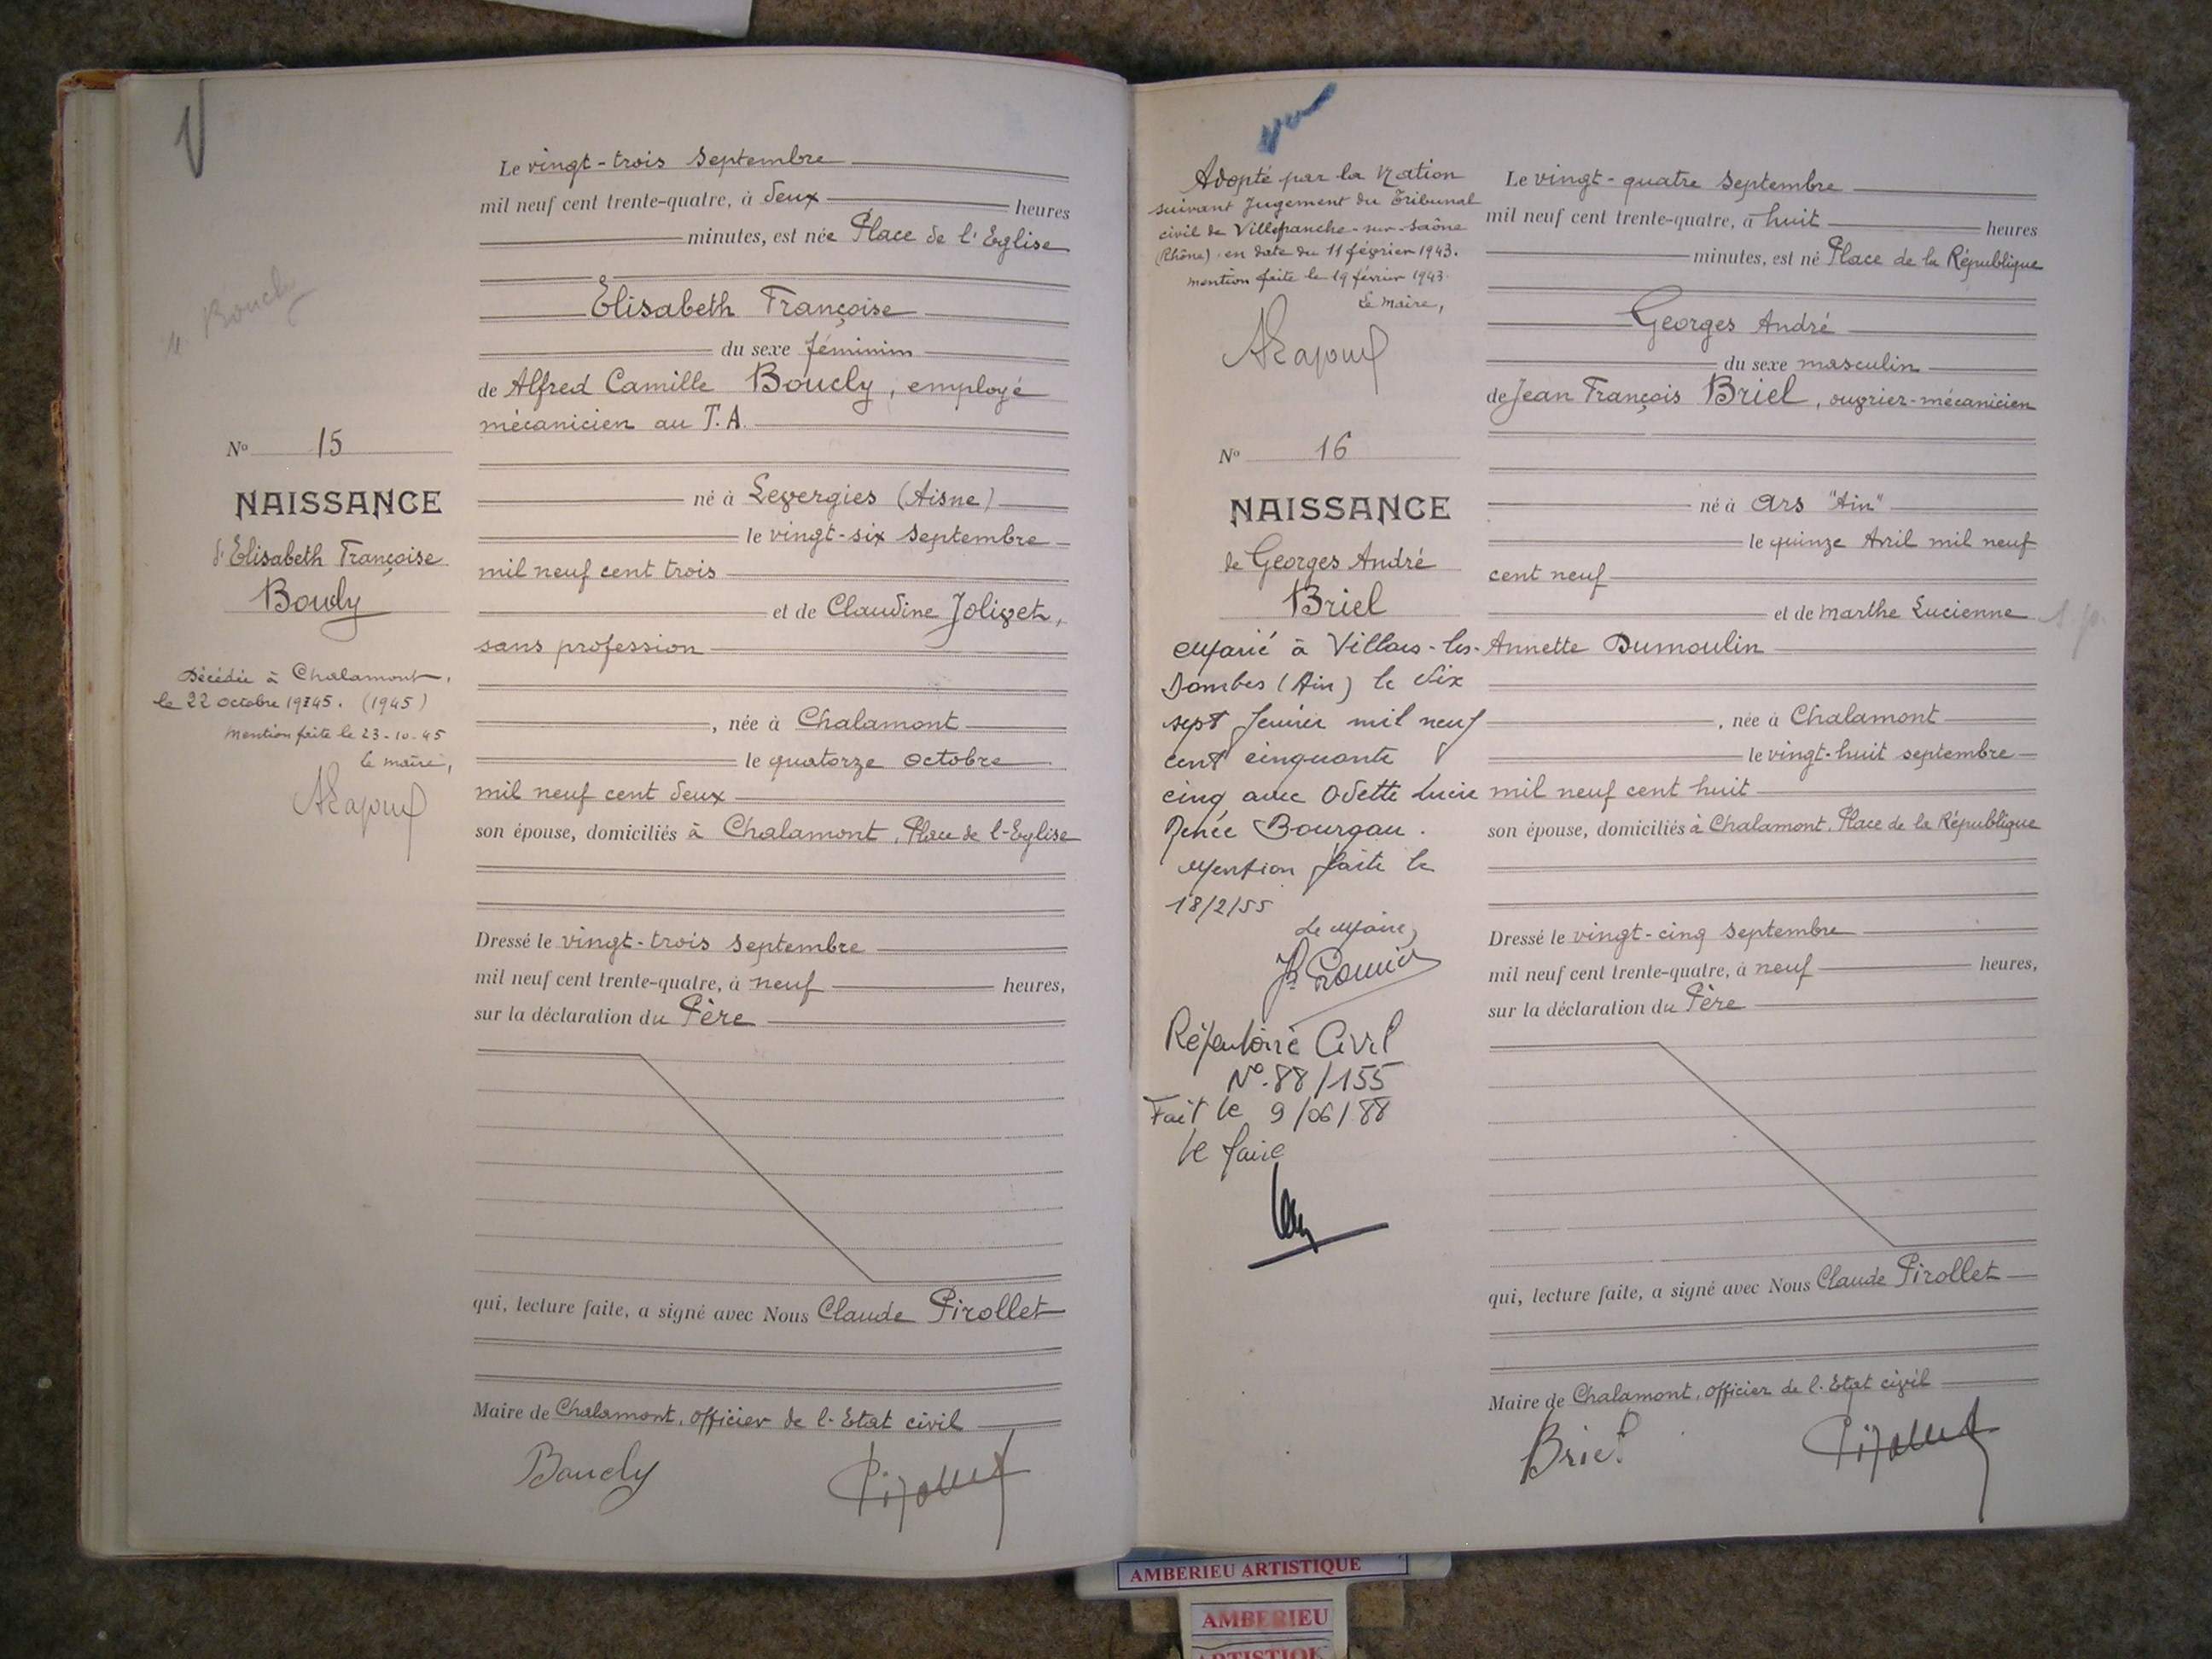 Le vingt-trois Septembre
mil neuf cent trente-quatre, à deux heures
minutes, est née Place de l'Eglise
Elisabeth Françoise
du sexe féminin
de Alfred Camille Boucly, employé
mécanicien au T.A.
né à Levergies (Aisne)
le vingt-six Septembre
mil neuf cent trois
et de Claudine Jolivet,
sans profession
, née à Chalamont
le quatorze Octobre
mil neuf cent deux
son épouse, domiciliés à Chalamont, Place de l'Eglise
Dressé le vingt-trois Septembre
mil neuf cent trente-quatre, à neuf heures,
sur la déclaration du Père
qui, lecture faite, a signé avec Nous Claude Pirollet
Maire de Chalamont, officier de l'Etat civil
Boucly
Boucly
No 15
NAISSANCE
d'Elisabeth Françoise
Boucly
Décédée à Chalamont,
le 22 Octobre 19745. (1945)
Mention faite le 23-10-45
le maire,
Adopté par la Nation
suivant Jugement du Tribunal
civil de Villefranche-sur-Saône
(Rhône) en date du 11 février 1943.
mention faite le 19 février 1943
Le maire,
No 16
NAISSANCE
de Georges André
Briel
Marié à Villars-les-
Dombes (Ain) le dix
sept février mil neuf
cent cinquante
cinq avec Odette Lucie
Renée Bourgau.
Mention faite le
18/2/55
Le Maire,
Répertoire Civil
No. 88/155
Fait le 9/06/88
le Maire
Le vingt-quatre Septembre
mil neuf cent trente-quatre, à huit heures
minutes, est né Place de la République
Georges André
du sexe masculin
de Jean François Briel, ouvrier-mécanicien
né à Ars "Ain"
le quinze Avril mil neuf
cent neuf
et de Marthe Lucienne
Annette Dumoulin
, née à Chalamont
le vingt-huit septembre
mil neuf cent huit
son épouse, domiciliés à Chalamont, Place de la République
Dressé le vingt-cinq Septembre
mil neuf cent trente-quatre, à neuf heures,
sur la déclaration du Père
qui, lecture faite, a signé avec Nous Claude Pirollet
Maire de Chalamont, officier de l'Etat civil
Briel
AMBERIEU ARTISTIQUE
AMBERIEU